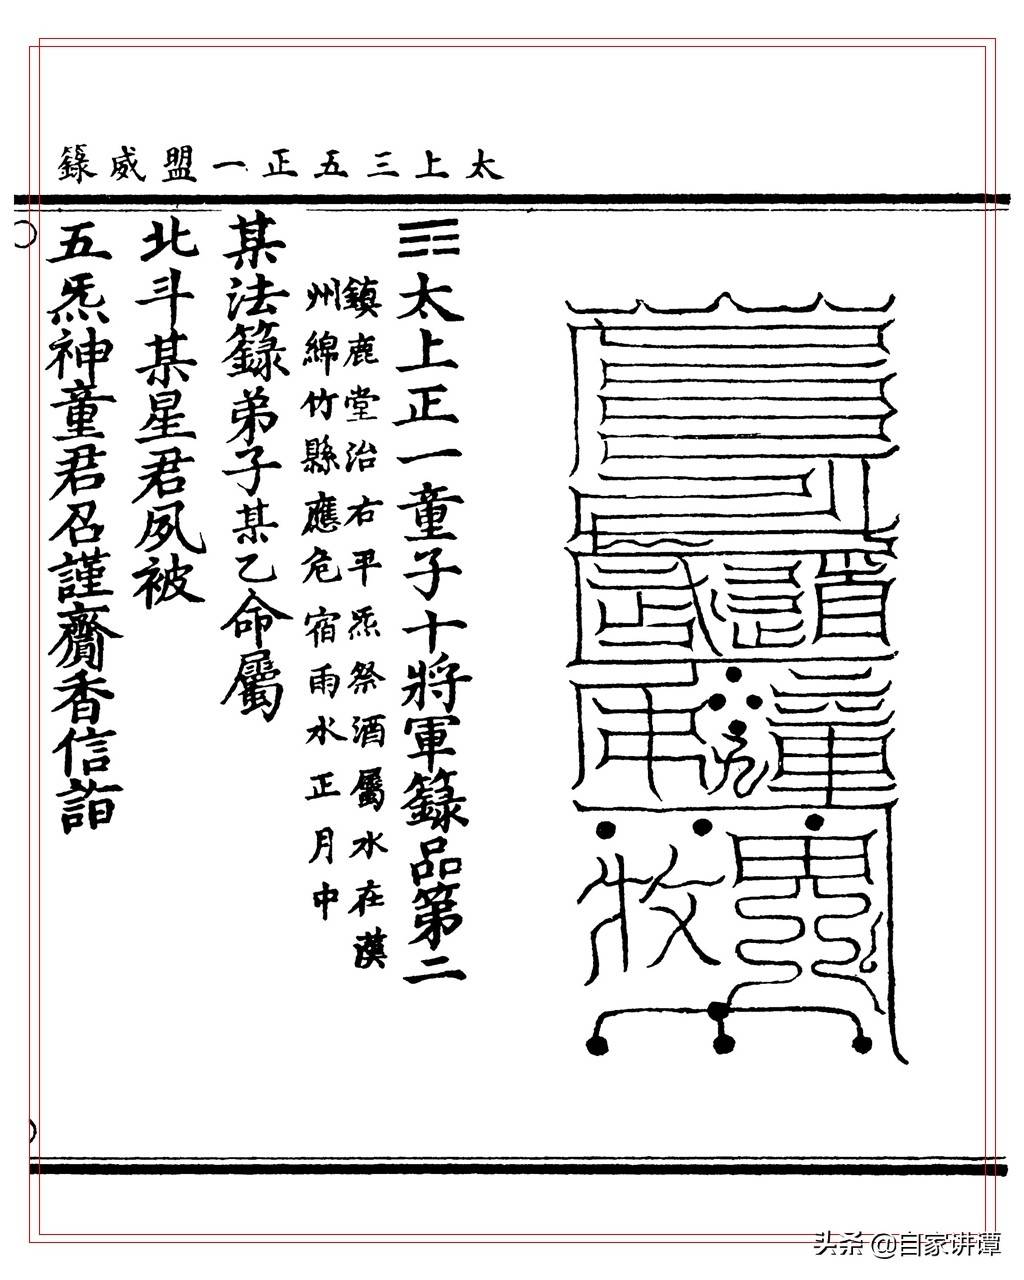 太上三五正一盟威籙
太上正一童子十將軍籙品第二
鎮鹿堂治右平炁祭酒屬水在漢
州綿竹縣應危宿雨水正月中
某法籙弟子某乙命屬
北斗某星君夙被
五炁神童君召謹齎香信詣
头条 @自家讲谭